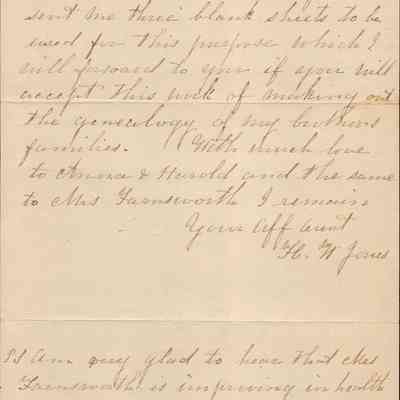 sent me three blank sheets to be
used for this purpose which I
will forward to you if you will
accept this work of making out
the geneology of my brothers
families. With much love
to Anna & Harold and the same
to Mrs Farnsworth I remain
Your Aff Aunt
H. W Jones
P.S Am very glad to hear that Mrs
Farnsworth is improving in health